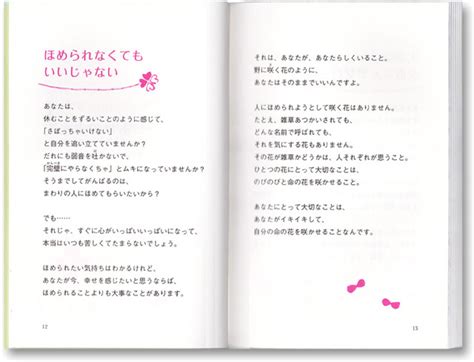 ほめられなくても
いいじゃない
あなたは、
休むことをずるいことのように感じて、
「さぼっちゃいけない」
と自分を追い立てていませんか?
だれにも弱音を吐かないで、
「完璧にやらなくちゃ」とムキになっていませんか?
そうまでしてがんばるのは、
まわりの人にほめてもらいたいから?
でも……
それじゃ、すぐに心がいっぱいいっぱいになって、
本当はいつも苦しくてたまらないでしょう。
ほめられたい気持ちはわかるけれど、
あなたが今、幸せを感じたいと思うならば、
ほめられることよりも大事なことがあります。
12
それは、あなたが、あなたらしくいること。
野に咲く花のように、
あなたはそのままでいいんですよ。
人にほめられようとして咲く花はありません。
たとえ、雑草あつかいされても、
どんな名前で呼ばれても、
それを気にする花もありません。
その花が雑草かどうかは、人それぞれが思うこと。
ひとつの花にとって大切なことは、
のびのびと命の花を咲かせること。
あなたにとって大切なことは、
あなたがイキイキして、
自分の命の花を咲かせることなんです。
13